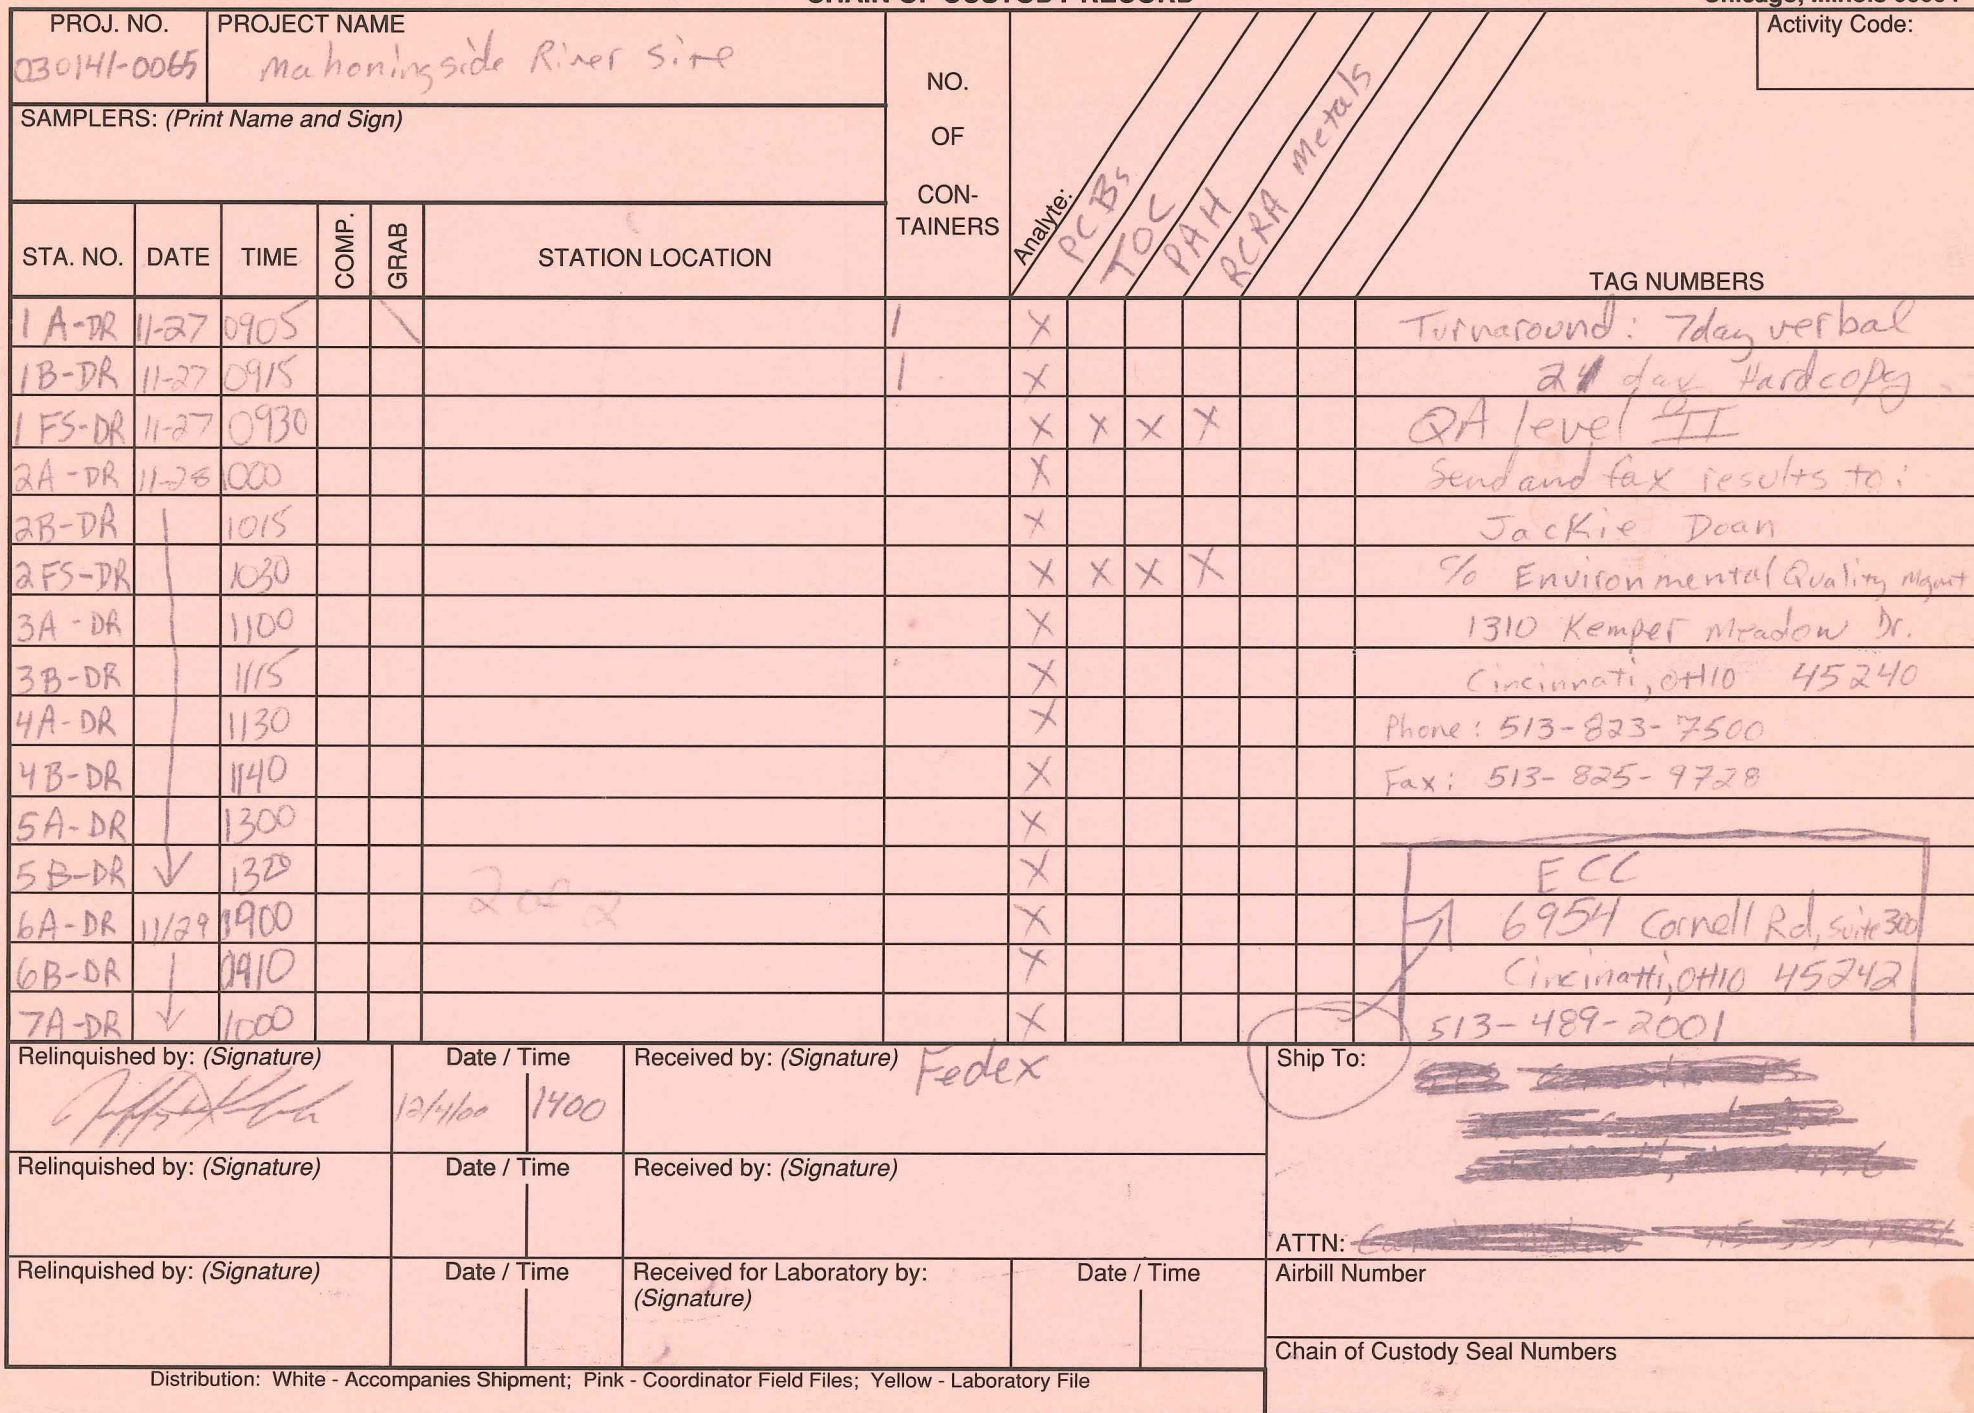 CHAIN OF CUSTODY RECORD
Chicago, Illinois
PROJ. NO. PROJECT NAME
030141-0065 Mahoningside River Site
Activity Code:
SAMPLERS: (Print Name and Sign)
NO.
OF
CON-
TAINERS
Analyte: PCBs TOC PAH RCRA Metals
STA. NO. DATE TIME COMP. GRAB STATION LOCATION TAG NUMBERS
1A-DR 11-27 0905 \ 1 X Turnaround: 7day verbal
1B-DR 11-27 0915 1 X 21 day Hardcopy
1FS-DR 11-27 0930 X X X X QA level II
2A-DR 11-28 1000 X Send and fax results to:
2B-DR 1015 X Jackie Doan
2FS-DR 1030 X X X X c/o Environmental Quality Mgmt
3A-DR 1100 X 1310 Kemper Meadow Dr.
3B-DR 1115 X Cincinnati, OHIO 45240
4A-DR 1130 X Phone: 513-823-7500
4B-DR 1140 X Fax: 513-825-9728
5A-DR 1300 X
5B-DR 1320 X ECC
6A-DR 11/29 0900 2 of 2 X 6954 Cornell Rd, Suite 300
6B-DR 0910 X Cincinatti, OHIO 45242
7A-DR 1000 X 513-489-2001
Relinquished by: (Signature) Date / Time Received by: (Signature) Fedex Ship To:
12/4/00 1400
Relinquished by: (Signature) Date / Time Received by: (Signature)
ATTN:
Relinquished by: (Signature) Date / Time Received for Laboratory by: Date / Time Airbill Number
(Signature)
Chain of Custody Seal Numbers
Distribution: White - Accompanies Shipment; Pink - Coordinator Field Files; Yellow - Laboratory File